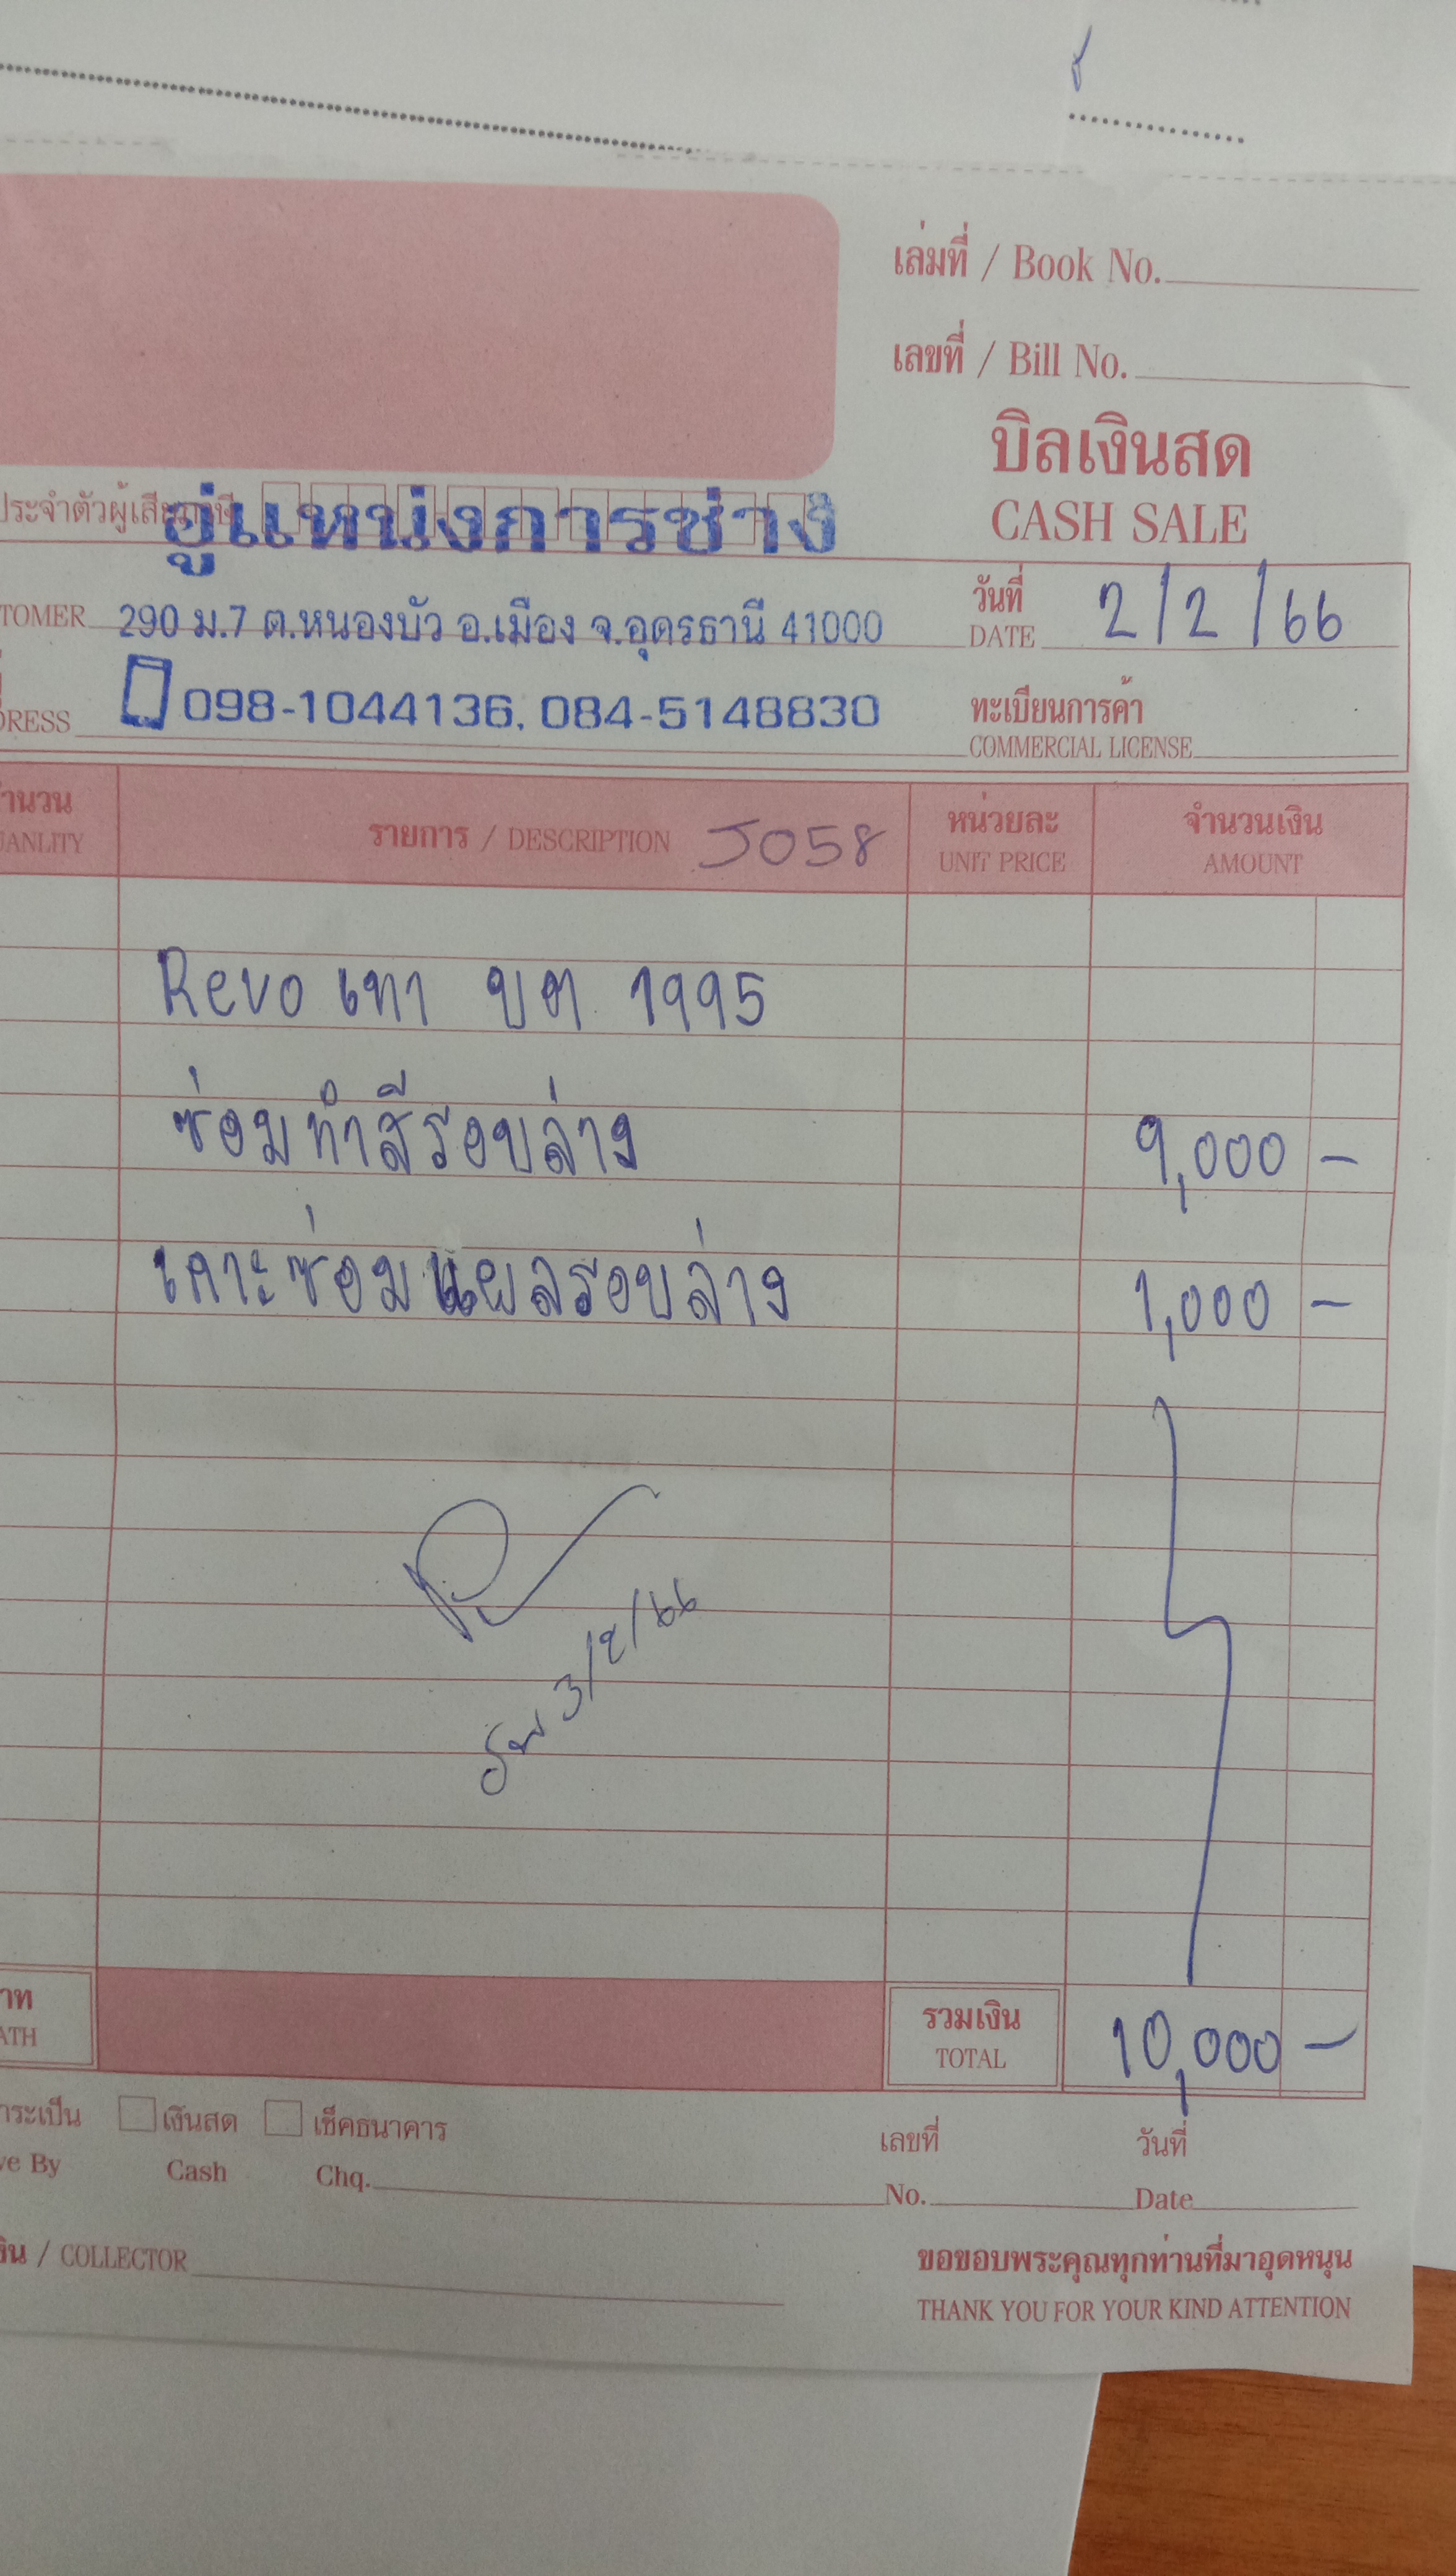 เล่มที่ / Book No.
เลขที่ / Bill No.
บิลเงินสด
CASH SALE
ประจำตัวผู้เสียภาษี
อู่แหน่งการช่าง
TOMER 290 ม.7 ต.หนองบัว อ.เมือง จ.อุดรธานี 41000
วันที่
DATE 2/2/66
DRESS 098-1044136, 084-5148830
ทะเบียนการค้า
COMMERCIAL LICENSE
ำนวน
UANLITY
รายการ / DESCRIPTION J058
หน่วยละ
UNIT PRICE
จำนวนเงิน
AMOUNT
Revo เทา ขต 1995
ซ่อมทำสีรอบล่าง 9,000 -
เคาะซ่อมแผลรอบล่าง 1,000 -
3/2/66
าท
ATH
รวมเงิน
TOTAL
10,000 -
ำระเป็น เงินสด เช็คธนาคาร
ve By Cash Chq.
เลขที่ วันที่
No. Date
งิน / COLLECTOR
ขอขอบพระคุณทุกท่านที่มาอุดหนุน
THANK YOU FOR YOUR KIND ATTENTION